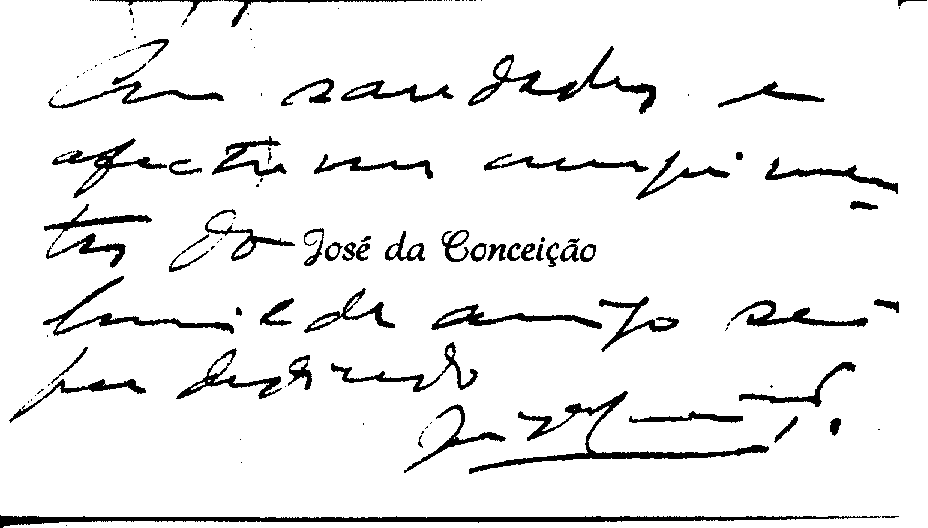 Com saudades e
afectuosos cumprimen-
tos do José da Conceição
humilde amigo sem-
pre dedicado
José da Conceição.